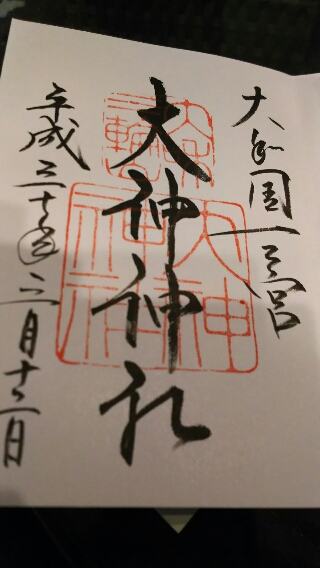 大和国一之宮
大神神社
大神
神社
平成三十年二月十二日